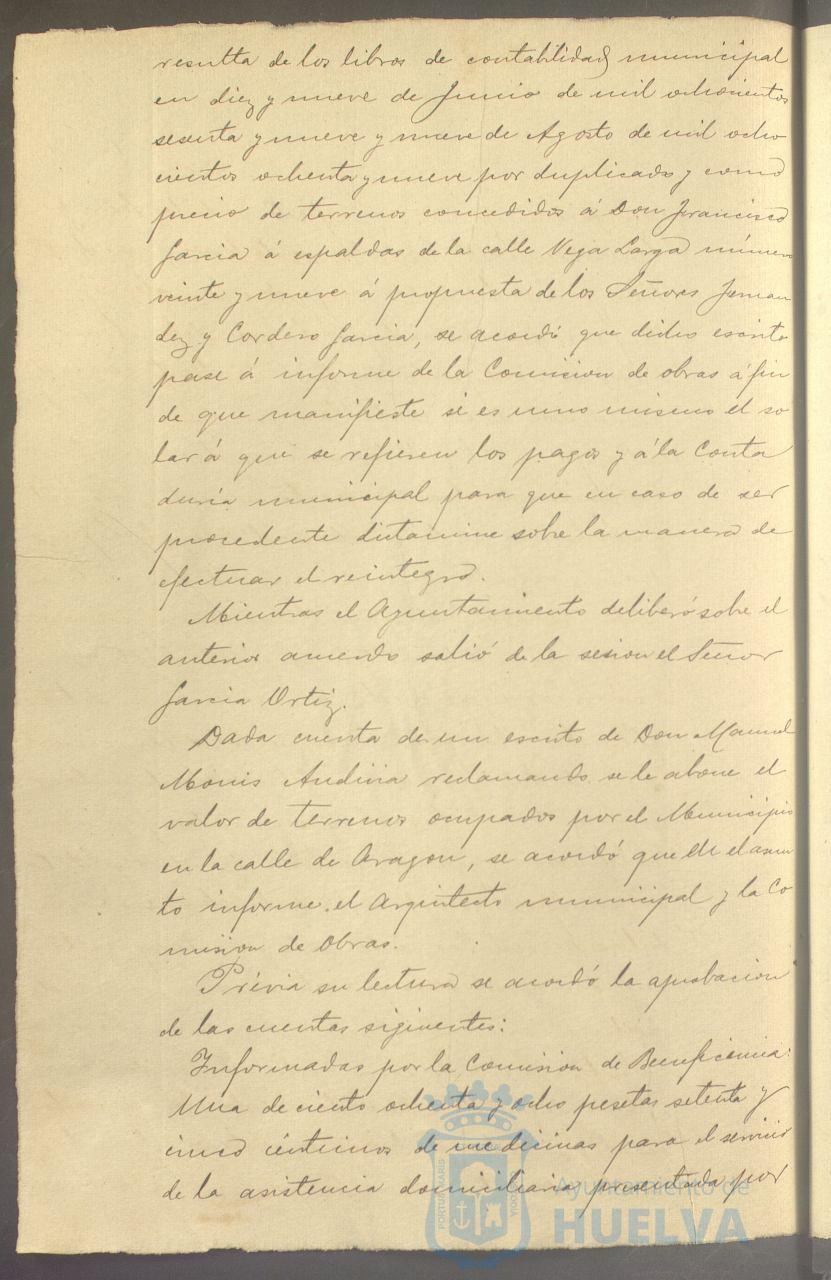 resulta de los libros de contabilidad municipal
en diez y nueve de Junio de mil ochocientos
sesenta y nueve y nueve de Agosto de mil ocho
cientos ochenta y nueve por duplicado y como
precio de terrenos concedidos á Don Francisco
Garcia á espaldas de la calle Vega Larga número
veinte y nueve á propuesta de los Señores Fernan
dez y Cordero Garcia, se acordó que dicho escrito
pase á informe de la Comision de obras á fin
de que manifieste si es uno mismo el so
lar á que se refieren los pagos y á la Conta
duria municipal para que en caso de ser
procedente dictamine sobre la manera de
efectuar el reintegro.
Mientras el Ayuntamiento deliberó sobre el
anterior acuerdo salió de la sesion el Señor
Garcia Ortiz.
Dada cuenta de un escrito de Don Manuel
Monis Andivia reclamando se le abone el
valor de terrenos ocupados por el Municipio
en la calle de Aragon, se acordó que en el asun
to informe el Arquitecto municipal y la Co
mision de Obras.
Prévia su lectura se acordó la aprobacion
de las cuentas siginentes:
Informadas por la Comision de Beneficencia:
Una de ciento ochenta y ocho pesetas setenta y
cinco céntimos de medicinas para el servicio
de la asistencia domiciliaria presentada por
Ayuntamiento de
HUELVA